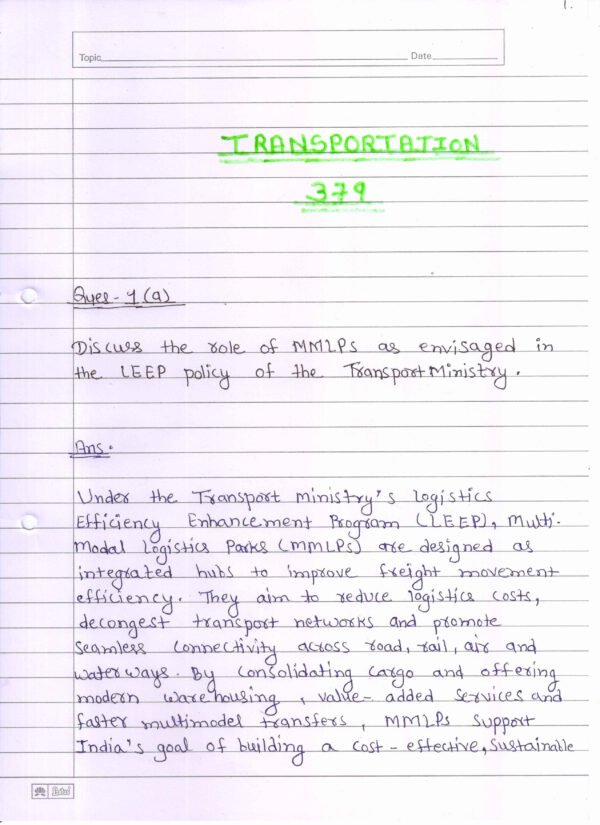 1.
Topic Date
TRANSPORTATION
379
Ques - 1 (a)
Discuss the role of MMLPs as envisaged in
the LEEP policy of the Transport Ministry.
Ans.
Under the Transport ministry's logistics
Efficiency Enhancement Program (LEEP), Multi-
Modal Logistics Parks (MMLPs) are designed as
integrated hubs to improve freight movement
efficiency. They aim to reduce logistics costs,
decongest transport networks and promote
seamless connectivity across road, rail, air and
waterways. By consolidating cargo and offering
modern warehousing, value-added services and
faster multimodel transfers, MMLPs support
India's goal of building a cost-effective, sustainable